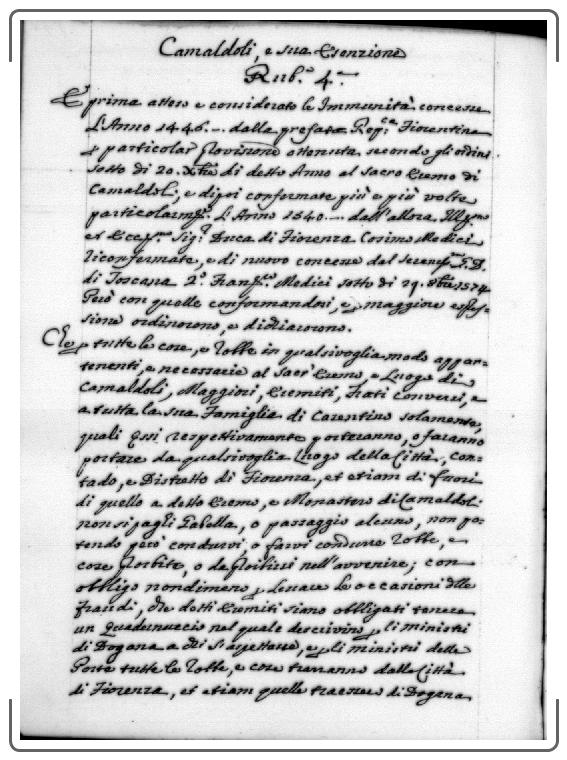 Camaldoli, e sua Esenzione
Rub.ª 4.ª
E prima atteso e considerato le Immunità concesse
L'Anno 1446. — dalla prefata Rep.ca Fiorentina
particolar Provisione ottenuta secondo gli ordini
sotto dì 20. Xbre di detto Anno al Sacro Eremo di
Camaldoli, e dipoi confermate più e più volte
particolarmte. L'Anno 1540. — dall'allora Illmo
et Ecc.mo Sig.r Duca di Fiorenza Cosimo Medici
riconfermate, e di nuovo concesse dal Seren.mo G. D.
di Toscana 2.º Fran.co Medici sotto dì 29. 8bre 1574
Però con quelle conformandosi, e p maggiore espres-
sione ordinorono, e dichiarorono.
Che p tutte le cose, e robbe in qualsivoglia modo appar-
tenenti, e necessarie al Sacr'Eremo, e Luogo di
Camaldoli, Maggiori, Eremiti, frati conversi, e
a tutta la sua Famiglia di Casentino solamente,
quali essi respettivamente porteranno, o faranno
portare da qualsivoglia Luogo della Città, con-
tado, e Distretto di Fiorenza, et etiam di fuori
di quello a detto Eremo, e Monastero di Camaldoli
non si paghi Gabella, o passaggio alcuno, non po-
tendo però condurvi, o farvi condurre robbe, e
cose proibite, o da proibirsi nell'avvenire; con
obbligo nondimeno p levare le occasioni delle
fraudi, che detti Eremiti siano obbligati tenere
un Quadernuccio nel quale descrivino p li ministri
di Dogana a chi s'aspettasse, e p li ministri delle
Porte tutte le robbe, e cose trarranno dalla Città
di Fiorenza, et etiam quelle traessero di Dogana